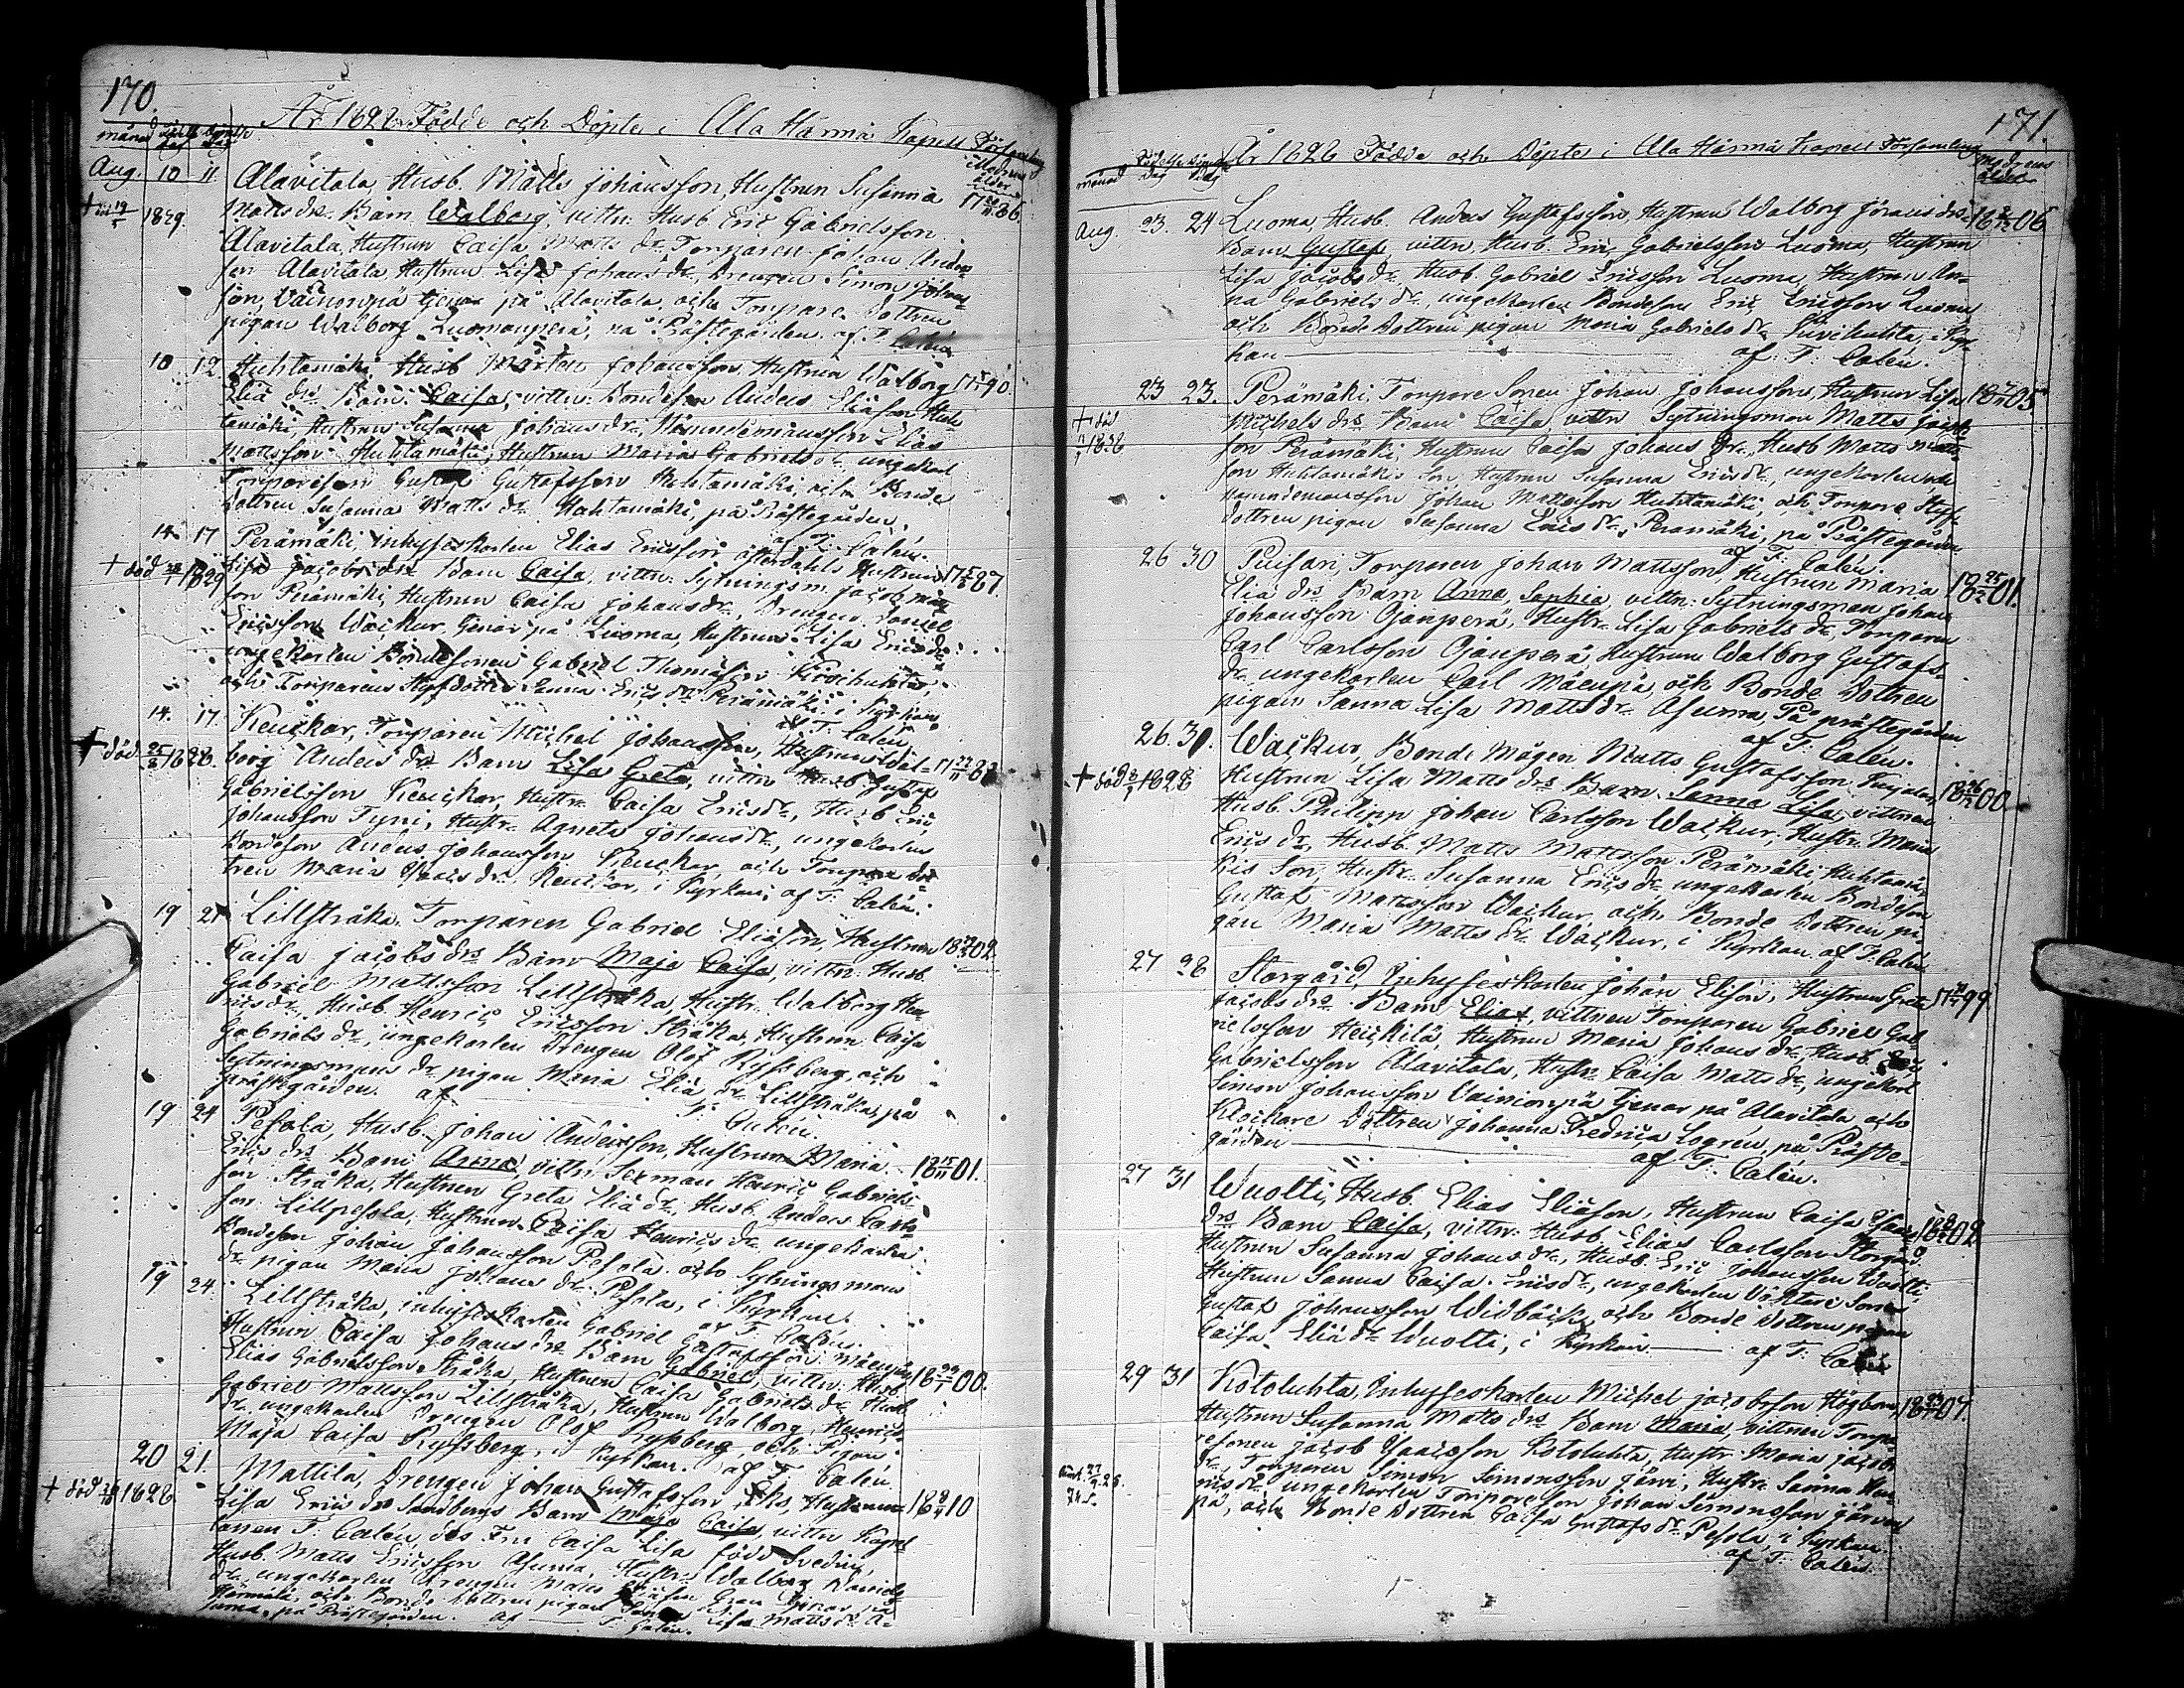 170.
År 1828 Födde och Döpte i Ala Härmä Kapell Församling
månad födelse dag döpelse dag Modrens ålder
Aug. 10 11. Alavitala, Husb. Matts Johansson, Hustrun Susanna
Matts dr. Barn Walborg, vittn: Husb Eric Gabrielsson
Alavitala, Hustrun Caisa Matts dr, Torparen Johan Anders
son Alavitala Hustrun Lisa Johans dr, Drengen Simon Johans
son Vainionpä tjenar på Alavitala och Torpare Dottren
pigan Walborg Luomanperä, på Prästegården. af F. Calén
10 12 Huhtamäki Husb Mårten Johansson Hustrun Walborg
Elia dr. Barn Caisa, vittn: Bondeson Anders Eliasson Huh
tamäki, Hustrun Susanna Johans dr, Nämndemansson Elias
Mattsson Huhtamäki, Hustrun Maria Gabriels dr ungekarl
Torpareson Gustaf Gustafsson Huhtamäki, och Bonde
Dottren Susanna Matts dr Huhtamäki, på Prästegården.
af F. Calén.
14. 17 Perämäki, inhyseskarlen Elias Ericsson Österdahls Hustrun
Lisa Jacobs dr Barn Caisa, vittn: Sytningsm. Jacob Matts
son Perämäki, Hustrun Caisa Johans dr, Drengen Daniel
Ericsson Wackur tjenar på Luoma, Hustrun Lisa Erics dr
ungekarlen Bondesonen Gabriel Thomasson Kivihuhta,
och Torparens Styfdotter Sanna Erics dr Perämäki i Kyrkan
af F. Calén
14. 17. Keuckar, Torparen Michel Johansson, Hustrun Wal-
borg Anders dr Barn Lisa Greta, vittn Husb Gustaf
Gabrielsson Keuckar, Hustr. Caisa Erics dr, Husb Eric
Johansson Tyni, Hustr. Agneta Johans dr, ungekarlen
Bondeson Anders Johansson Keuckar, och Torpare dot
tren Maria Isacs dr. Keuckar, i Kyrkan, af F. Calén.
19 21 Lillstråka. Torparen Gabriel Eliasson, Hustrun
Caisa Jacobs dr. Barn Maja Caisa, vittn: Husb
Gabriel Mattsson Lillstråka, Hustr. Walborg Hen
rics dr, Husb Henric Ericsson Stråka, Hustrun Caisa
Gabriels dr, ungekarlen Drengen Olof Ryssberg, och
Sytningsmans dr pigan Maria Elia dr Lillstråka, på
prästegården. af F. Calén.
19 24 Pesola, Husb. Johan Andersson, Hustrun Maria
Erics dr. Barn Anna, vittn Sexman Henric Gabriels
son Stråka, Hustrun Greta Elia dr, Husb. Anders Carls
son Lillpesola, Hustrun Caisa Henrics dr ungekarlen
Bondeson Johan Johansson Pesola och Sytningsmans
dr pigan Maria Johans dr Pesola, i Kyrkan.
af F. Calén.
19 24. Lillstråka, inhyseskarlen Gabriel Gustafsson Mäenpä
Hustrun Caisa Johans dr. Barn Gabriel, vittn: Husb
Elias Gabrielsson Stråka, Hustrun Caisa Gabriels dr Husb
Gabriel Mattsson Lillstråka, Hustrun Walborg Henrics
dr ungekarlen Drengen Olof Ryssberg och Pigan
Maja Caisa Ryssberg, i Kyrkan. af F. Calén.
20 21. Mattila, Drengen Johan Gustafsson Hustrun
Lisa Erics dr Sandbergs Barn Maja Caisa, vittn Kapel
lanen F. Calén, dess Fru Caisa Lisa född Svedin,
Husb. Matts Ericsson Asuma, Hustr. Walborg Daniels
dr ungekarlen Drengen Matts Eliasson Gran tjenar på
Härmälä, och Bonde Dottren pigan Sanna Lisa Matts dr A-
suma, på Prästegården. af F. Calén.
171.
År 1828 Födde och Döpte i Ala Härmä Kapell Församling
månad Födelse dag döpelse dag Modrens ålder
Aug. 23. 24 Luoma, Husb. Anders Gustafsson Hustrun Walborg Jörans dr.
Barn Gustaf vittn. Husb. Eric Gabrielsson Luoma, Hustrun
Lisa Jacobs dr Husb Gabriel Ericsson Luoma, Hustrun An-
na Gabriels dr, ungekarlen Bondeson Eric Ericsson Luoma
och Bonde Dottren pigan Maria Gabriels dr Kivihuhta, i Kyr-
kan af F. Calén.
23 23. Perämäki, Torpare Sonen Johan Johansson, Hustrun Lisa
Michels dr. Barn Caisa vittn Sytningsman Matts Jacobs
son Perämäki, Hustrun Caisa Johans Dr, Husb Matts Matts
son Huhtamäkis Son, Hustrun Susanna Erics dr, ungekarlen
nämndemansson Johan Mattsson Huhtamäki, och Torpare Styf
dottren pigan Susanna Erics dr Perämäki, på Prästegården
af F. Calén.
26 30 Puisari, Torparen Johan Mattsson, Hustrun Maria
Elia dr. Barn Anna Sophia, vittn: Sytningsman Johan
Johansson Ojanperä, Hustr. Lisa Gabriels dr Torparen
Carl Carlsson Ojanperä, Hustrun Walborg Gustafs-
dr ungekarlen Carl Mäenpä, och Bonde Dottren
pigan Sanna Lisa Matts dr Asuma, På prästegården
af F. Calén.
26. 31. Waickur, Bonde Mågen Matts Gustafsson
Hustrun Lisa Matts dr. Barn Sanna Lisa, vittnen
Husb. Philipp Johan Carlsson Waickur, Hustr. Maria
Erics dr, Husb. Matts Mattsson Perämäki, Huhtamä-
kis Son, Hustr. Susanna Erics dr ungekarlen Bondeson
Gustaf Mattsson Waickur och Bonde Dottren pi
gan Maria Matts dr Waickur, i Kyrkan. af F. Calén
27 28 Storgård Inhyseskarlen Johan Elisson, Hustrun Greta
Jacobs dr. Barn Elias, vittnen Torparen Gabriel Gab-
rielsson Heickilä, Hustrun Maria Johans dr, Husb Eric
Gabrielsson Alavitala, Hustr. Caisa Matts dr, ungekarl
Simon Johansson Vainionpä tjenar på Alavitala och
Klockare Dottren Johanna Fredrica Logrén, på Präste-
gården af F. Calén.
27 31 Wuolti, Husb. Elias Eliasson, Hustrun Caisa Isacs
dr. Barn Caisa, vittn: Husb. Elias Carlsson Storgård,
Hustrun Susanna Johans dr, Husb. Eric Johansson Wuolti
Hustrun Sanna Caisa Erics dr, ungekarlen Väktare Sonen
Gustaf Johansson Widbäck, och Bonde Dottren pigan
Caisa Elia dr Wuolti, i Kyrkan. af F. Calén
29 31 Kotoluhta, Inhyseskarlen Michel Jacobsson Högbom,
Hustrun Susanna Matts dr. Barn Maria, vittnen Torpa
resonen Jacob Isacsson Kotoluhta, Hustr. Maria Jacobs
dr, Torparen Simon Simonsson Järvi, Hustr. Sanna Hen
rics dr ungekarlen Torpareson Johan Simonsson Järven
pä, och Bonde Dottren Caisa Gustafs dr Pesola, i Kyrkan
af F. Calén.